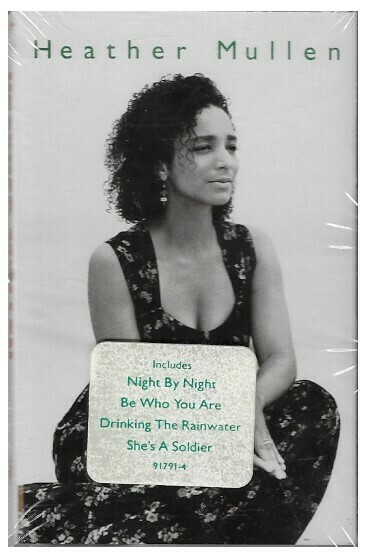 Heather Mullen
Includes
Night By Night
Be Who You Are
Drinking The Rainwater
She's A Soldier
91791-4